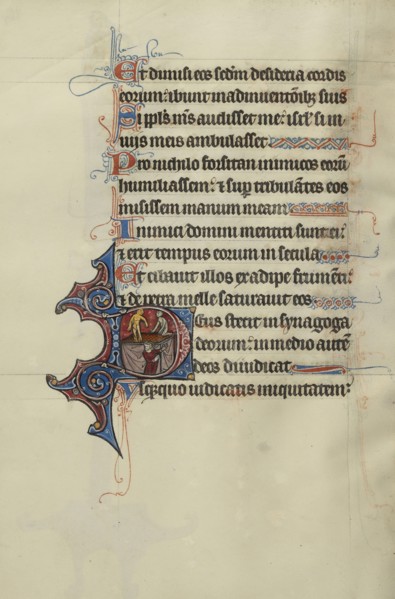 Et dimisi eos scdm desideria cordis
eorum: ibunt in adinuentionib; suis
Si ppls ms audisset me: isrl si in
uijs meis ambulasset
Pro nichilo forsitan inimicos eorū
humiliassem: & sup tribulātes eos
misissem manum meam
Inimici domini mentiti sunt ei:
& erit tempus eorum in secula
Et cibauit illos ex adipe frumenti:
& de petra melle saturauit eos
Deus stetit in synagoga
deorum: in medio autē
deos diiudicat
Usqꝫquo iudicatis iniquitatem: